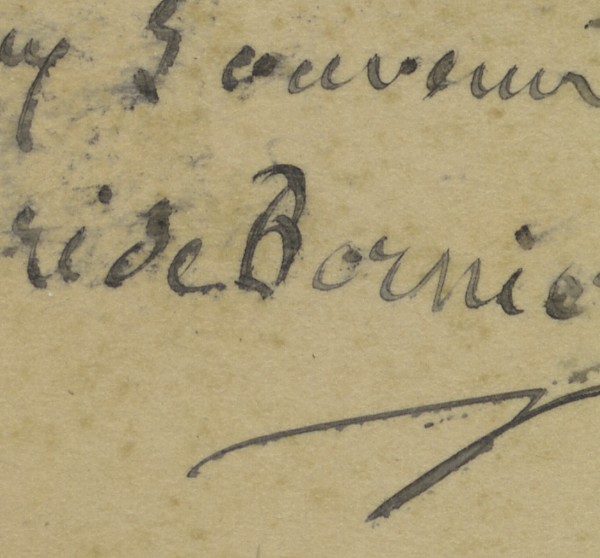 souvenir
ri de Bornier